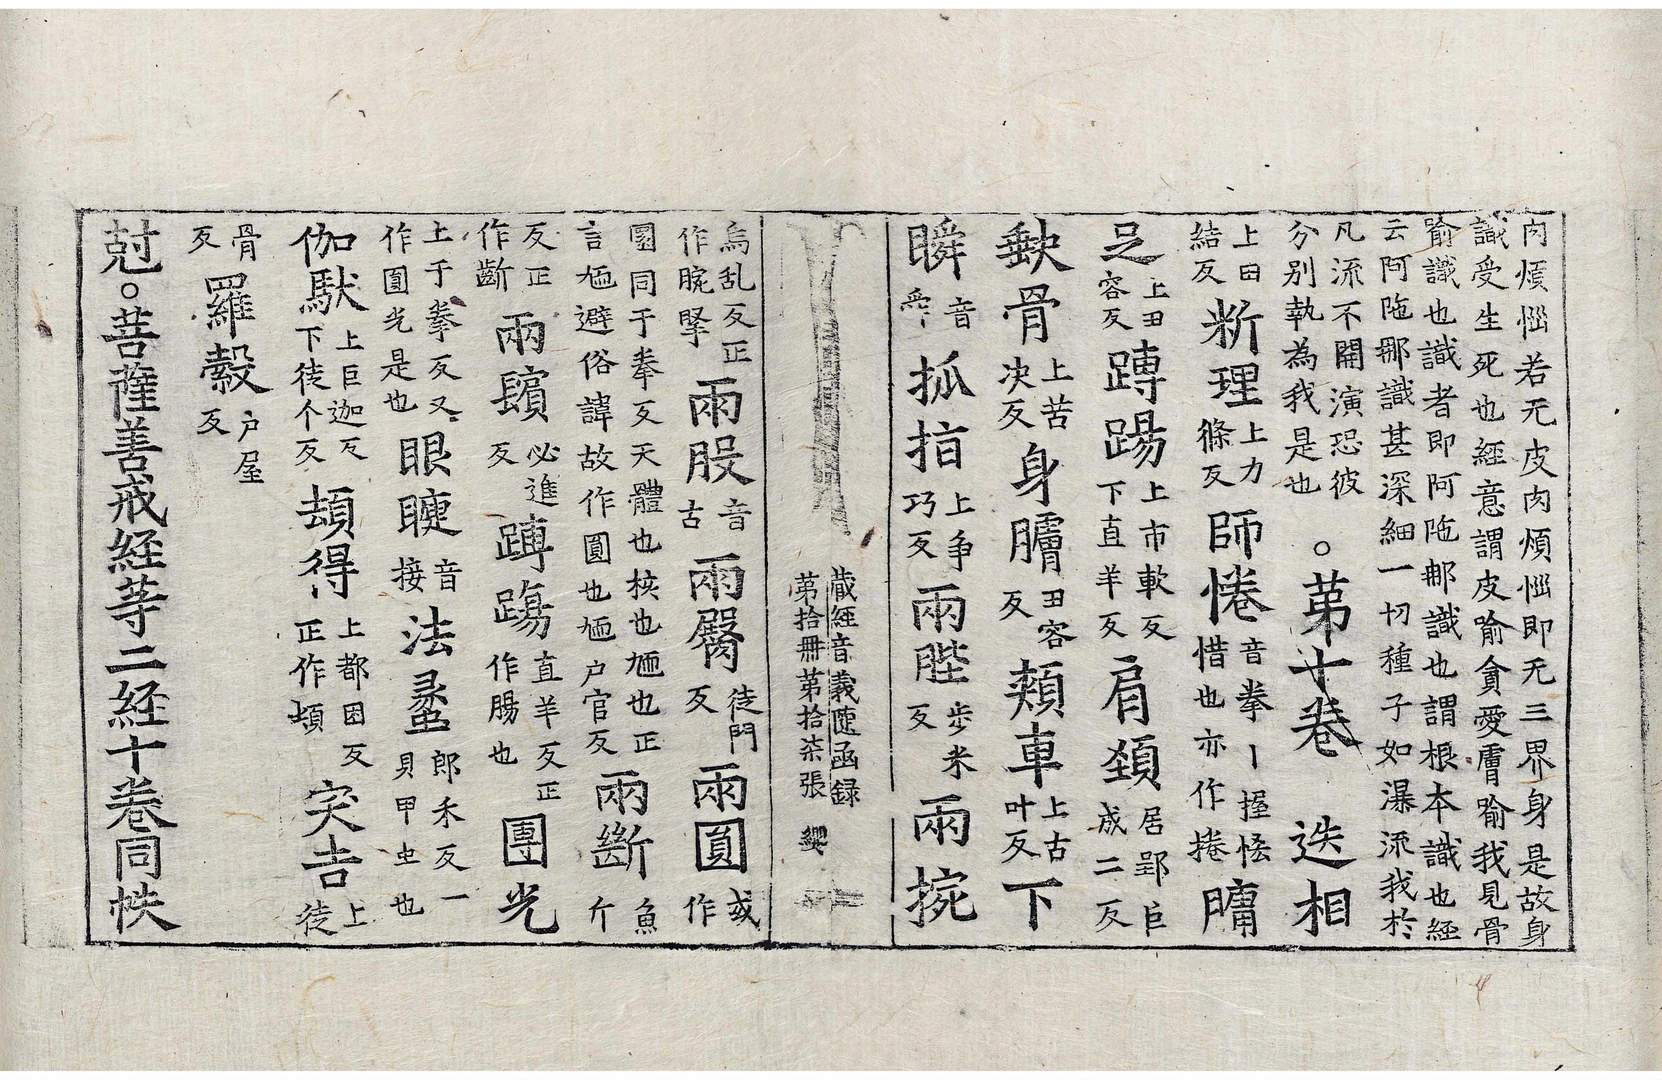 肉煩惱若无皮肉煩惱即无三界身是故身
識受生死也經意謂皮喻貪愛膚喻我見骨
喻識也識者即阿陁𨙻識也謂根本識也經
云阿陁𨙻識甚深細一切種子如瀑流我於
凡流不開演恐彼
分別執為我是也
。第十卷
迭相
上田
結反
𣂪理
上力
條反
師惓
音拳丨握㤓
惜也亦作捲
𦟛
足
上丑
容反
蹲踢
上市軟反
下直羊反
肩頦
居郢巨
成二反
䤥骨
上苦
决反
身𦟛
丑容
反
頰車
上古
叶反
下
瞬
音
舜
抓掐
上爭
巧反
兩䏶
步米
反
兩捥
藏經音義隨函録
第拾冊第拾柒張 纓
烏乱反正
作腕掔
兩股
音
古
兩臋
徒門
反
兩圓
或
作
圝同于拳反天體也𢬵也𡯐也正
言𡯐避俗諱故作圓也𡯐户官反
兩齗
魚
斤
反正
作齗
兩鬢
必進
反
蹲踼
直羊反正
作腸也
團光
上于拳反又
作圓光是也
眼𥇒
音
接
法蠡
郎禾反一
貝甲虫也
伽䭾
上巨迦反
下徒个反
頓得
上都困反
正作頓
突吉
上
徒
骨
反
羅縠
户屋
反
䞣。菩薩善戒經等二經十卷同帙